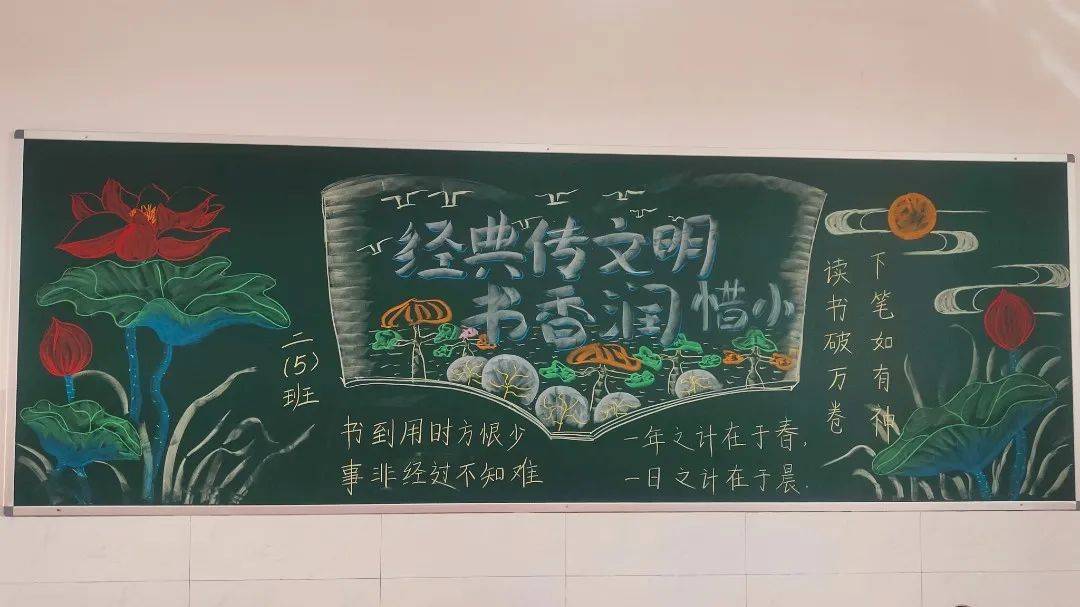 经典传文明
书香润惜小
二
(5)
班
书到用时方恨少
事非经过不知难
一年之计在于春,
一日之计在于晨.
下笔如有神
读书破万卷